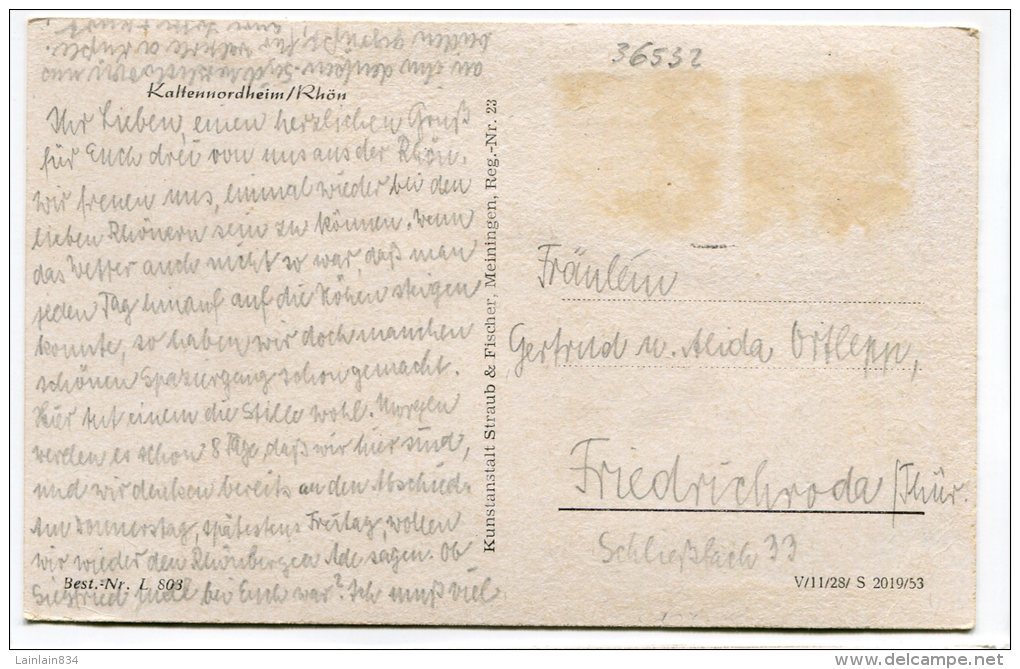 Kaltennordheim/Rhön
Ihr Lieben, einen herzlichen Gruß
für Euch drei von uns aus der Rhön.
Wir freuen uns, einmal wieder bei den
lieben Rhönern sein zu können. Wenn
das Wetter auch nicht so war, daß man
jeden Tag hinauf auf die Höhen steigen
konnte, so haben wir doch manchen
schönen Spaziergang schon gemacht.
Hier tut einem die Stille wohl. Morgen
werden es schon 8 Tage, daß wir hier sind,
und wir denken bereits an den Abschied.
Am Donnerstag, spätestens Freitag, wollen
wir wieder den Rhönbergen Ade sagen. Ob
Siegfried bei Euch war? Ich muß viel
an ihn denken.
Best.-Nr. L 803
Kunstanstalt Straub & Fischer, Meiningen, Reg.-Nr. 23
36532
Fräulein
Gertrud u. Aleida Ortlepp,
Friedrichroda/Thür.
Schließfach 33
V/11/28/ S 2019/53
Lainlain834
delcampe.net